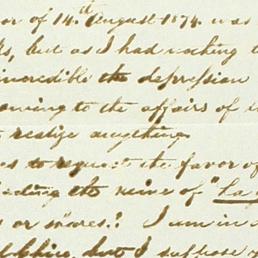 or of 14th August 1874. was
ks, but as I had nothing t
incredible the depression
owing to the affairs of
realize anything.
es to request the favor of
ading the mine of "La
s or mores.? I am in
but I suppose